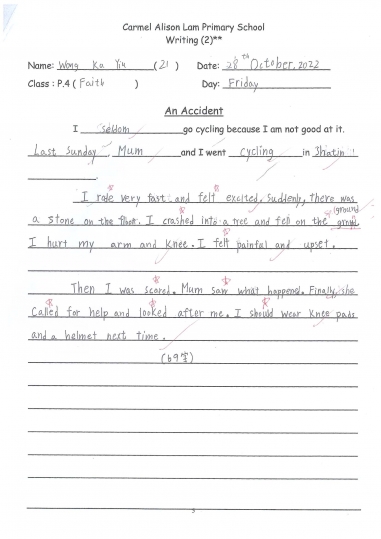 Carmel Alison Lam Primary School
Writing (2)**
Name: Wong Ka Yiu (21) Date: 28th October, 2022
Class : P.4 ( Faith ) Day: Friday
An Accident
I seldom go cycling because I am not good at it.
Last Sunday, Mum and I went cycling in Shatin
.
I rode very fast and felt excited. Suddenly, there was
(ground
a stone on the floor. I crashed into a tree and fell on the
I hurt my arm and knee. I felt painful and upset.
Then I was scared. Mum saw what happened. Finally, she
called for help and looked after me. I should wear knee pads
and a helmet next time.
(69字)